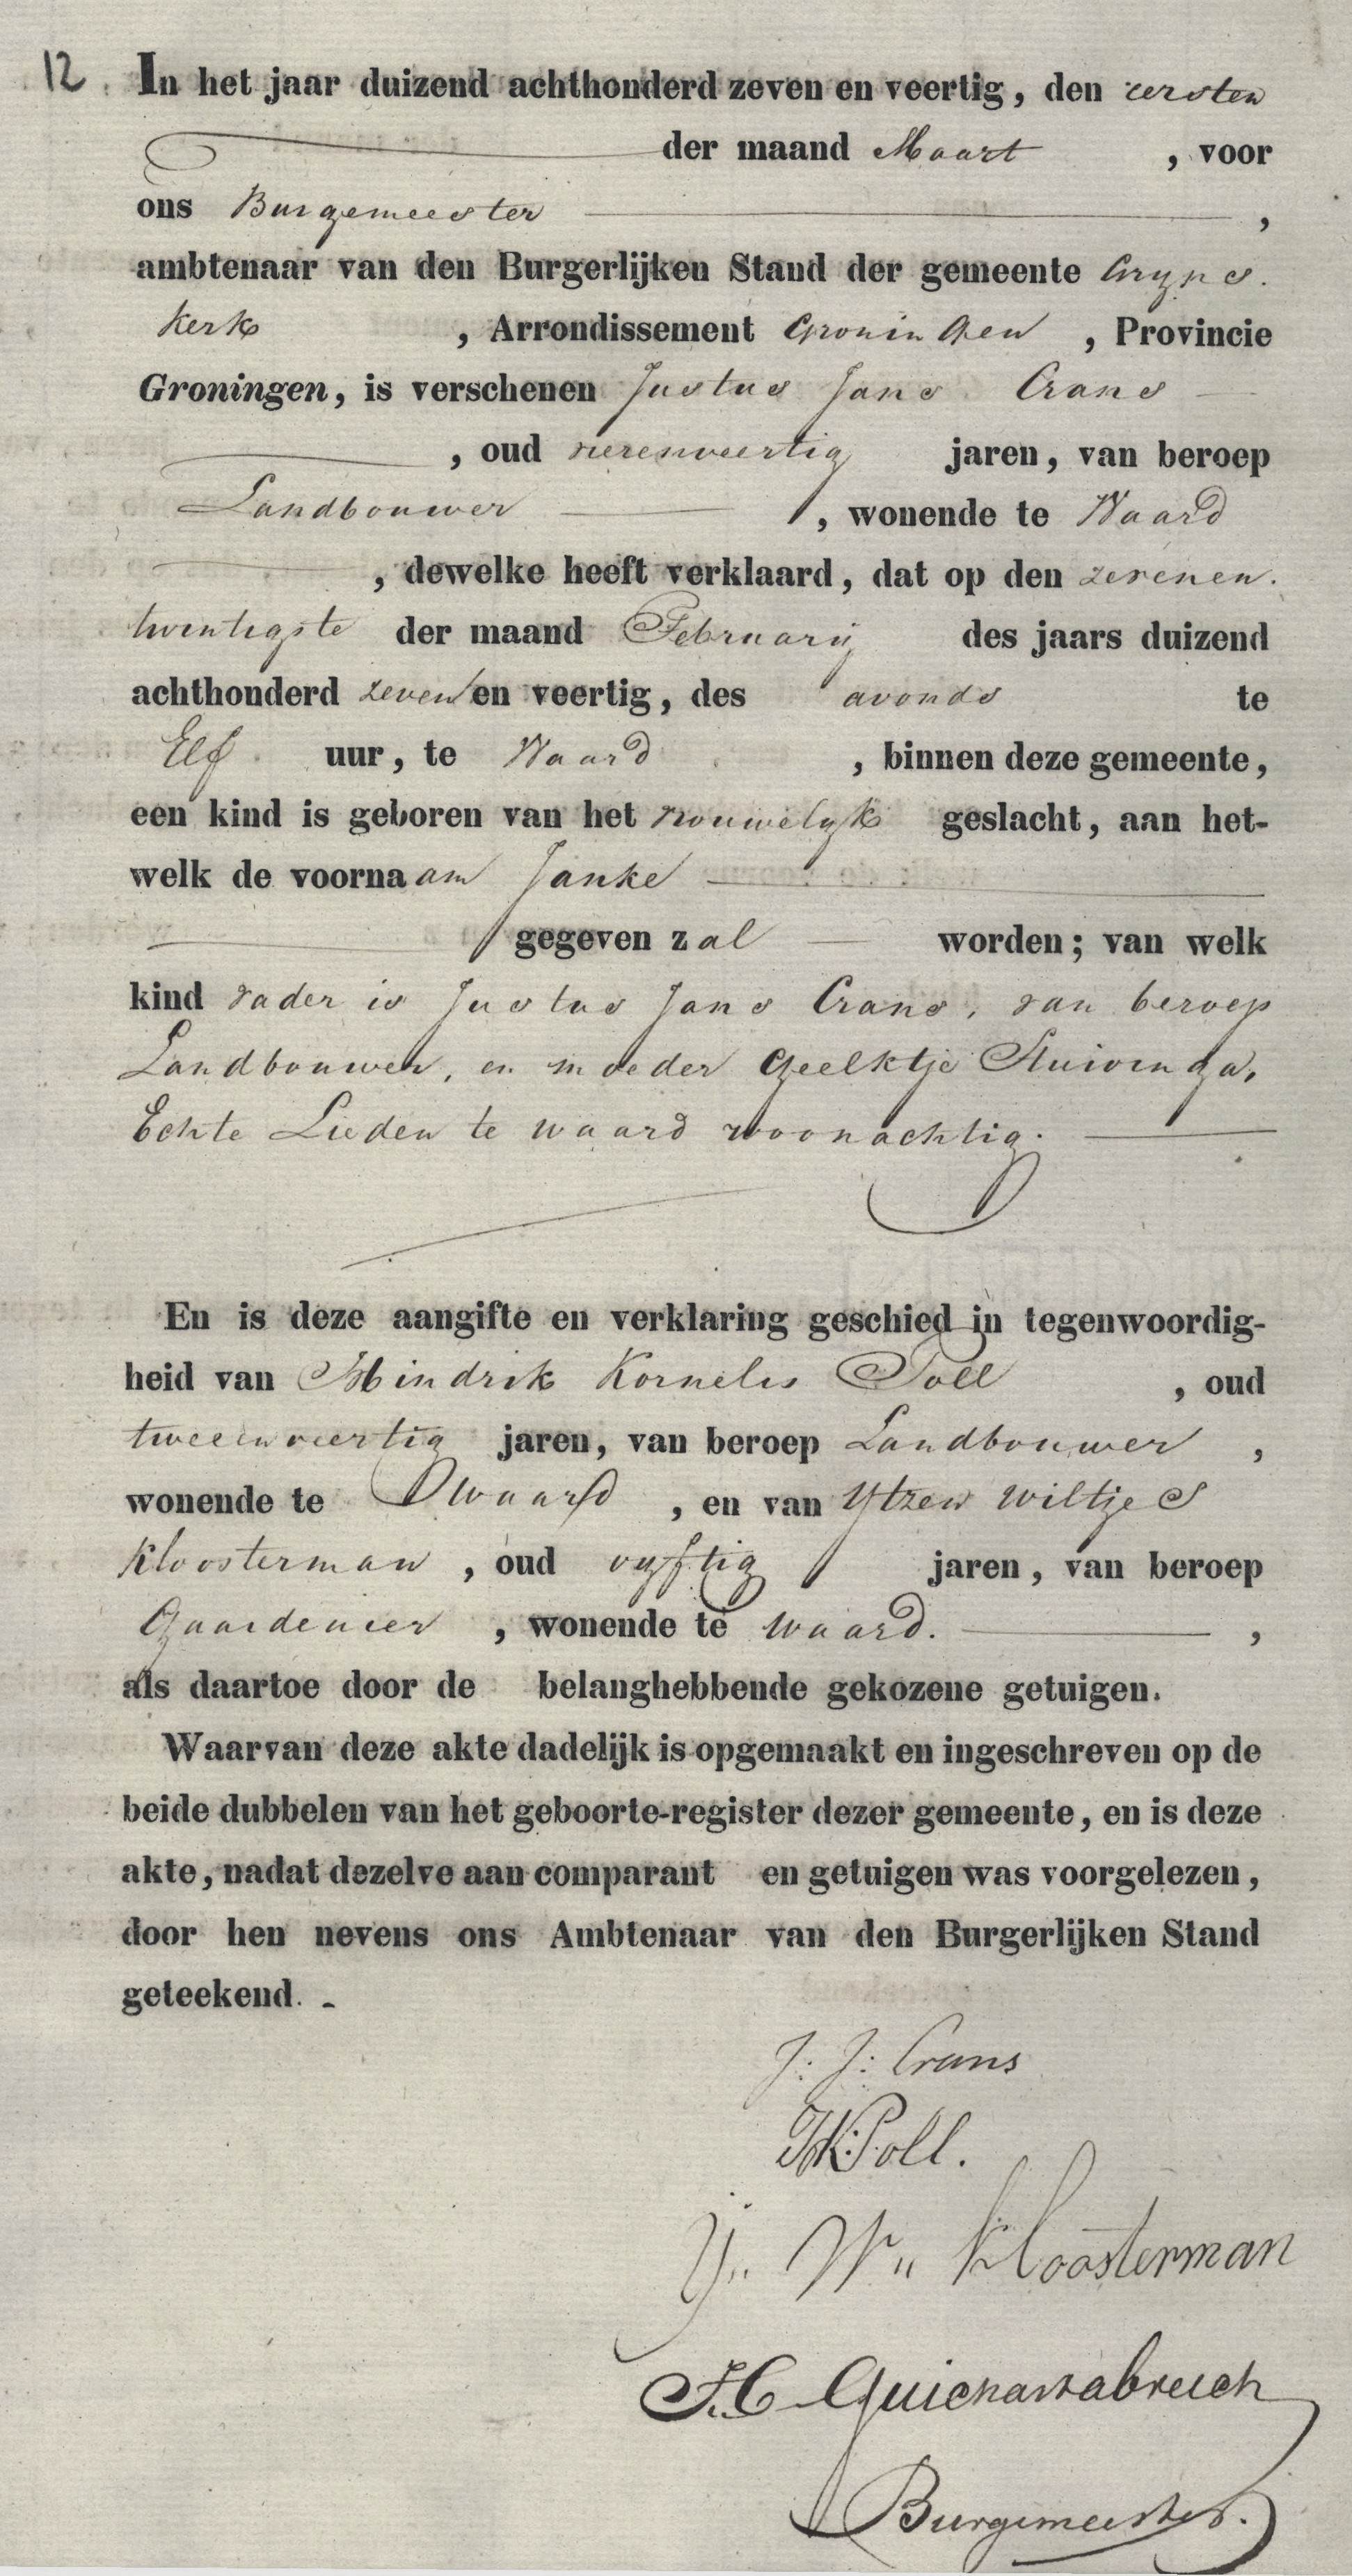 12. In het jaar duizend achthonderd zeven en veertig, den eersten
der maand Maart , voor
ons Burgemeester ,
ambtenaar van den Burgerlijken Stand der gemeente Gryps.
kerk , Arrondissement Groningen , Provincie
Groningen, is verschenen Justus Jans Crans
, oud vierenveertig jaren, van beroep
Landbouwer , wonende te Waard
, dewelke heeft verklaard, dat op den zevenen.
twintigste der maand February des jaars duizend
achthonderd zeven en veertig, des avonds te
Elf uur, te Waard , binnen deze gemeente,
een kind is geboren van het vrouwelyk geslacht, aan het-
welk de voornaam Janke
gegeven zal worden; van welk
kind vader is Justus Jans Crans, van beroep
Landbouwer, en moeder Geelktje Stuivinga,
Echte Lieden te waard woonachtig.
En is deze aangifte en verklaring geschied in tegenwoordig-
heid van Hindrik Kornelis Poll , oud
tweeenveertig jaren, van beroep Landbouwer ,
wonende te Waard , en van Ytzen Wiltjes
Kloosterman , oud vyftig jaren, van beroep
Gaardenier , wonende te waard. ,
als daartoe door de belanghebbende gekozene getuigen.
Waarvan deze akte dadelijk is opgemaakt en ingeschreven op de
beide dubbelen van het geboorte-register dezer gemeente, en is deze
akte, nadat dezelve aan comparant en getuigen was voorgelezen,
door hen nevens ons Ambtenaar van den Burgerlijken Stand
geteekend. -
J: J: Crans
HK:Poll.
Y,, W,, Kloosterman
Burgemeester.